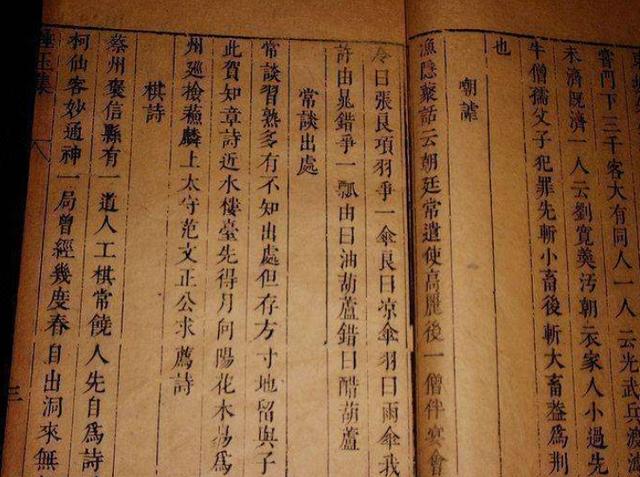 嘗門下三千客大有同人一人云光武兵渡滹
未濟既濟一人云劉寬羹汚朝衣家人小過先
牛僧孺父子犯罪先斬小畜後斬大畜葢爲荆
也
嘲謔
漁隱叢話云朝廷常遣使高麗後一僧伴宴會
令曰張良項羽爭一傘良曰凉傘羽曰雨傘我
許由晁錯爭一瓢由曰油葫蘆錯曰醋葫蘆
常談出處
常談習熟多有不知出處但存方寸地留與子
此賀知章詩近水樓臺先得月向陽花木易爲
州廵檢蘇麟上太守范文正公求薦詩
棋詩
蔡州褒信縣有一道人工棋常饒人先自爲詩
柯仙客妙通神一局曾經幾度春自出洞來無
玉集
三